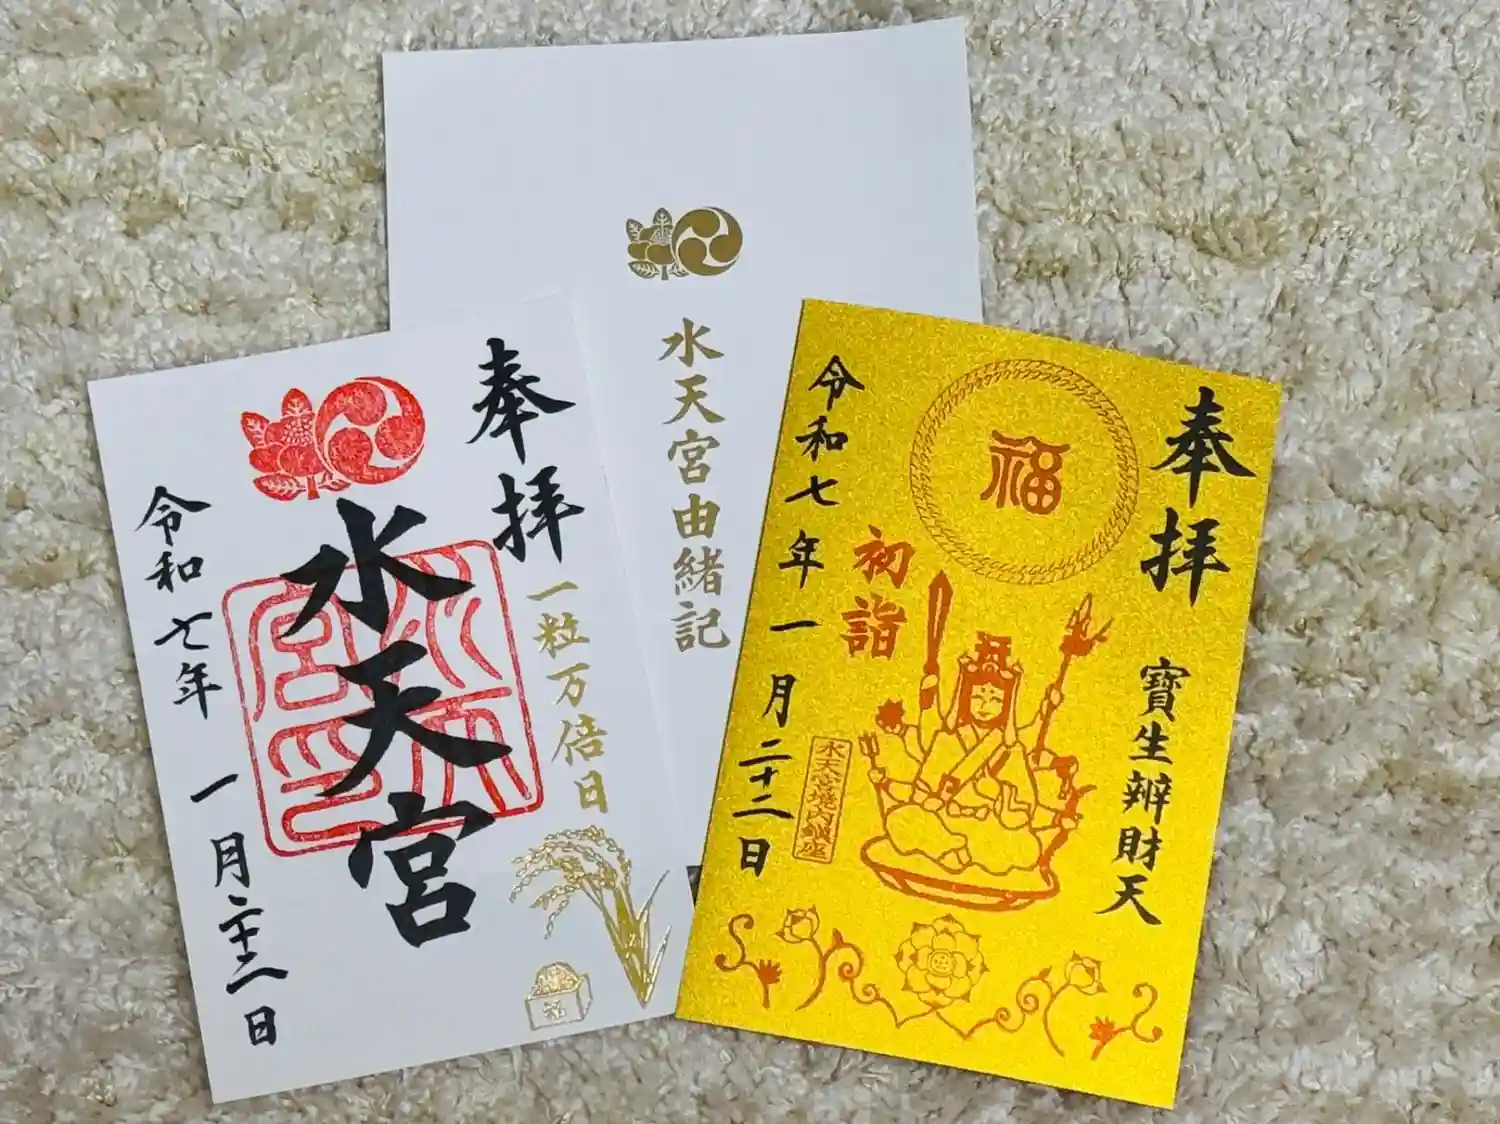 水天宮由緒記
奉拝
一粒万倍日
水天宮
令和七年 一月二十二日
奉拝
寳生辨財天
福
初詣
水天宮境内鎮座
令和七年一月二十二日